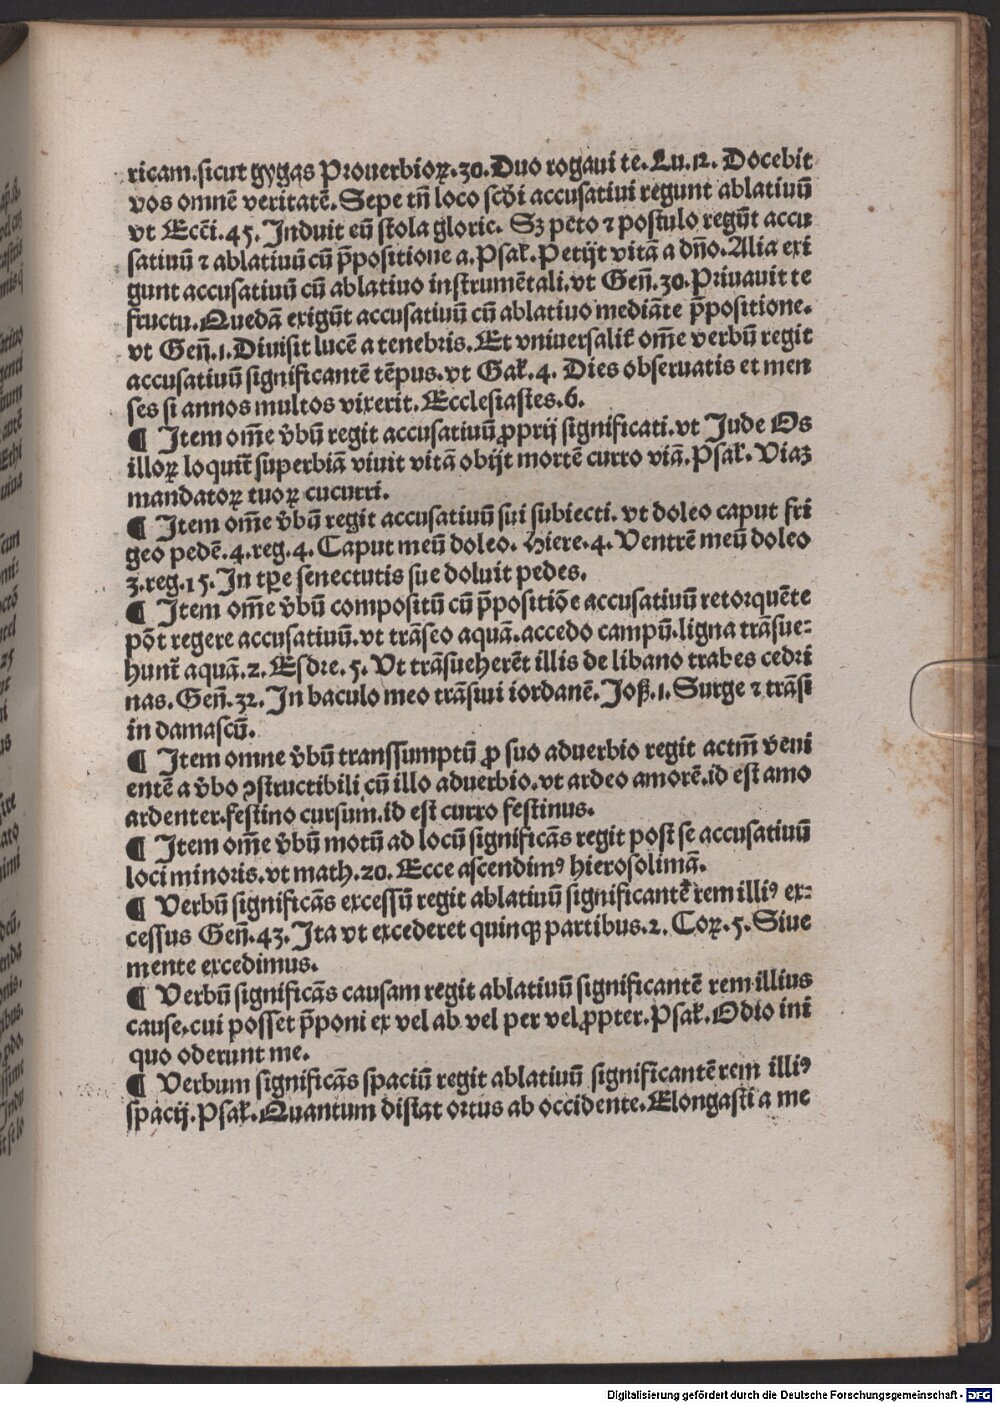 ricam.sicut gygas Prouerbioꝝ.30.Duo rogaui te.Lu.12. Docebit
vos omnē veritatē.Sepe tñ loco scđi accusatiui regunt ablatiuū
vt Ecći.45.Induit eū stola glorie. Sꝫ peto ⁊ postulo regūt accu
satiuū ⁊ ablatiuū cū p̄positione a.Psaꝉ.Petijt vitā a dño.Alia exi
gunt accusatiuū cū ablatiuo instrumētali.vt Geñ.30.Priuauit te
fructu.Quedā exigūt accusatiuū cū ablatiuo mediāte p̄positione.
vt Geñ.1.Diuisit lucē a tenebris.Et vniuersalit̄ om̄e verbū regit
accusatiuū significantē tēpus.vt Gaꝉ.4. Dies obseruatis et men
ses si annos multos vixerit.Ecclesiastes.6.
¶ Item om̄e v̄bū regit accusatiuū ꝓprij significati.vt Jude Os
illoꝝ loquit̄ superbiā viuit vitā obijt mortē curro viā.Psaꝉ.Viaꝫ
mandatoꝝ tuoꝝ cucurri.
¶ Item om̄e v̄bū regit accusatiuū sui subiecti. vt doleo caput fri
geo pedē.4.reg.4. Caput meū doleo. Hiere.4.Ventrē meū doleo
3.reg.15.In tꝑe senectutis sue doluit pedes.
¶ Item om̄e v̄bū compositū cū p̄positiōe accusatiuū retorquēte
pōt regere accusatiuū.vt trāseo aquā.accedo campū.ligna trāsue-
hunt̄ aquā.2. Esdre.5. Vt trāsueherēt illis de libano trabes cedri
nas.Geñ.32.In baculo meo trāsiui iordanē.Joß.1.Surge ⁊ trāsi
in damascū.
¶ Item omne v̄bū transsumptū ꝓ suo aduerbio regit actm̄ v̄eni
entē a v̄bo ꝯstructibili cū illo aduerbio.vt ardeo amorē.id est amo
ardenter.festino cursum.id est curro festinus.
¶ Item om̄e v̄bū motū ad locū significās regit post se accusatiuū
loci minoris.vt math.20.Ecce ascendimꝰ hierosolimā.
¶ Verbū significās excessū regit ablatiuū significantē rem illiꝰ ex-
cessus Geñ.43.Ita vt excederet quinqꝫ partibus.2. Coꝝ.5.Siue
mente excedimus.
¶ Verbū significās causam regit ablatiuū significantē rem illius
cause.cui posset p̄poni ex vel ab vel per vel ꝓpter.Psaꝉ.Odio ini
quo oderunt me.
¶ Verbum significās spaciū regit ablatiuū significantē rem illiꝰ
spacij.Psaꝉ.Quantum distat ortus ab occidente.Elongasti a me
Digitalisierung gefördert durch die Deutsche Forschungsgemeinschaft - DFG